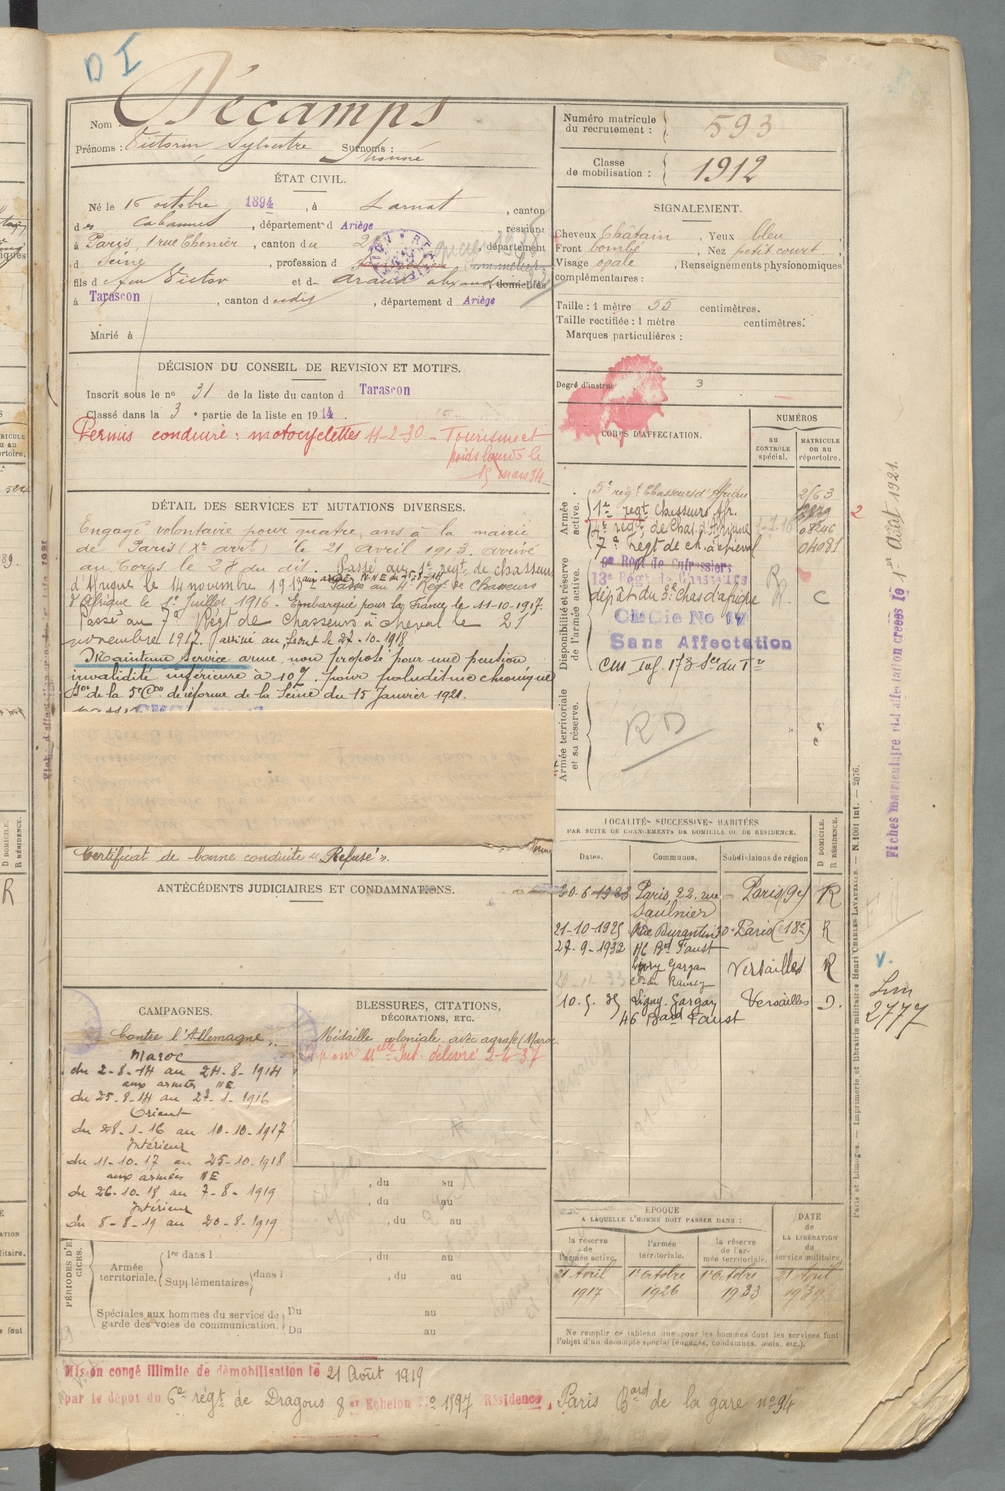 D I
Nom : Décamps
Prénoms : Victorin Sylvestre Surnoms : Honoré
ÉTAT CIVIL.
Né le 16 octobre 1894, à Larnat, canton
d es Cabannes, département d Ariège, résidant
à Paris, 1 rue Chenier, canton du 2 département
d Seine, profession d
fils d feu Victor et d domiciliés
à Tarascon, canton d udis, département d Ariège
Marié à
DÉCISION DU CONSEIL DE REVISION ET MOTIFS.
Inscrit sous le nº 31 de la liste du canton d Tarascon
Classé dans la 3e partie de la liste en 1914.
Permis conduire : motocyclettes 11-2-30 - Tourisme et
poids lourds le
15 mars 34
DÉTAIL DES SERVICES ET MUTATIONS DIVERSES.
Engagé volontaire pour quatre ans à la mairie
de Paris (Xe arrt) le 21 avril 1913. arrivé
au Corps le 28 du dis. Passé au 1er regt de chasseurs
d'Afrique le 14 novembre 191 Passé au 4e Régt de Chasseurs
d'Afrique le 1er Juillet 1916 - Embarqué pour la France le 11-10-1917.
Passé au 7e Régt de Chasseurs à cheval le 21
novembre 1917. Arrivé au front le 27-10-1918
Maintenu Service armé, non proposé pour une pension,
invalidité inférieure à 10%. pour paludisme chronique
de la 5e Con de réforme de la Seine du 15 Janvier 1921.
Certificat de bonne conduite "Refusé".
ANTÉCÉDENTS JUDICIAIRES ET CONDAMNATIONS.
CAMPAGNES.
Contre l'Allemagne
Maroc
du 2-8-14 au 24-8-1914
aux armées NE
du 25-8-14 au 27-1-1916
Orient
du 28-1-16 au 10-10-1917
Intérieur
du 11-10-17 au 25-10-1918
aux armées NE
du 26-10-18 au 7-8-1919
Intérieur
du 8-8-19 au 20-8-1919
BLESSURES, CITATIONS,
DÉCORATIONS, ETC.
Médaille coloniale avec agrafe (Maroc
délivré 2-4-37
, du au
, du au
, du au
1re dans l , du au
Armée
territoriale.
Supplémentaires dans l , du au
Spéciales aux hommes du service de
garde des voies de communication.
Du au
Du au
Mis en congé illimité de démobilisation le 21 Août 1919
par le dépôt du 6e régt de Dragons 8e Echelon nº 1597 Résidence, Paris Bard de la gare nº 94
Numéro matricule
du recrutement : 593
Classe
de mobilisation : 1912
SIGNALEMENT.
Cheveux Châtain, Yeux bleu
Front bombé, Nez petit court
Visage ovale, Renseignements physionomiques
complémentaires :
Taille : 1 mètre 55 centimètres.
Taille rectifiée : 1 mètre centimètres.
Marques particulières :
Degré d'instruc 3
CORPS D'AFFECTATION.
NUMÉROS
AU
CONTRÔLE
spécial.
MATRICULE
OU AU
répertoire.
Armée
active.
5e régt Chasseurs d'Afrique 2163
1er regt Chasseurs Afr.
4e régt de Chas. d'Afrique
7e Régt de ch. à cheval 04081
Disponibilité et réserve
de l'armée active.
9e Régt de Cuirassiers
13e Régt de Chasseurs
dépôt du 3e Chas d'afrique R C
CM Cie No 17
Sans Affectation
CM Inf. 173
Armée territoriale
et sa réserve.
RD
LOCALITÉS SUCCESSIVES HABITÉES
PAR SUITE DE CHANGEMENTS DE DOMICILE OU DE RÉSIDENCE.
Dates. Communes. Subdivisions de région
D DOMICILE.
R RÉSIDENCE.
Paris, 22 rue Paris (9e) R
Saulnier
21-10-1925 Rue Durantin 30 - Paris (18e) R
27-9-1932 46 Bd Faust
Livry Gargan Versailles R
10.5.35 Livry-Gargan Versailles D.
46 Bard Faust
EPOQUE
A LAQUELLE L'HOMME DOIT PASSER DANS :
la réserve
de
l'armée active.
l'armée
territoriale.
la réserve
de l'ar-
mée territoriale.
DATE
de
LA LIBÉRATION
du
service militaire.
21 Avril
1917
1er Octobre
1926
1er Octobre
1933
21 Avril
Ne remplir ce tableau que pour les hommes dont les services font
l'objet d'un décompte spécial (engagés, condamnés, omis, etc.).
Fiches matriculaire et d'affectation créées le 1er Août 1921.
Paris et Limoges. — Imprimerie et librairie militaires Henri CHARLES-LAVAUZELLE. — N. 1001 int. — 2076.
2
V.
2777